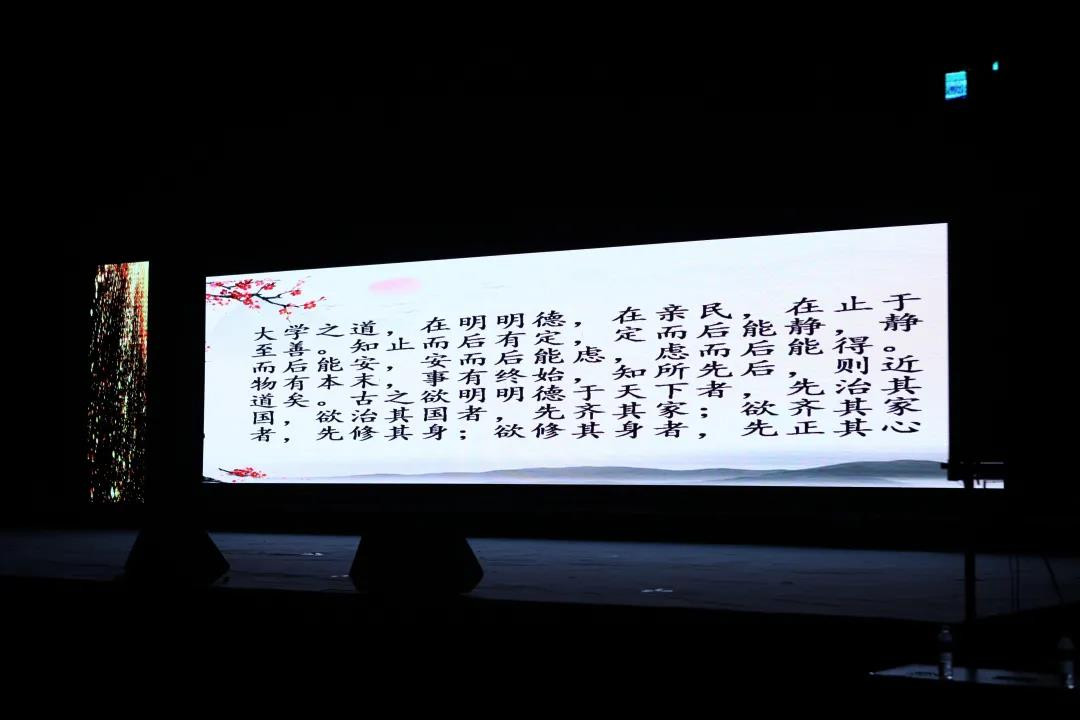 大学之道，在明明德，在亲民，在止于
至善。知止而后有定，定而后能静，静
而后能安，安而后能虑，虑而后能得。
物有本末，事有终始，知所先后，则近
道矣。古之欲明明德于天下者，先治其
国，欲治其国者，先齐其家；欲齐其家
者，先修其身；欲修其身者，先正其心